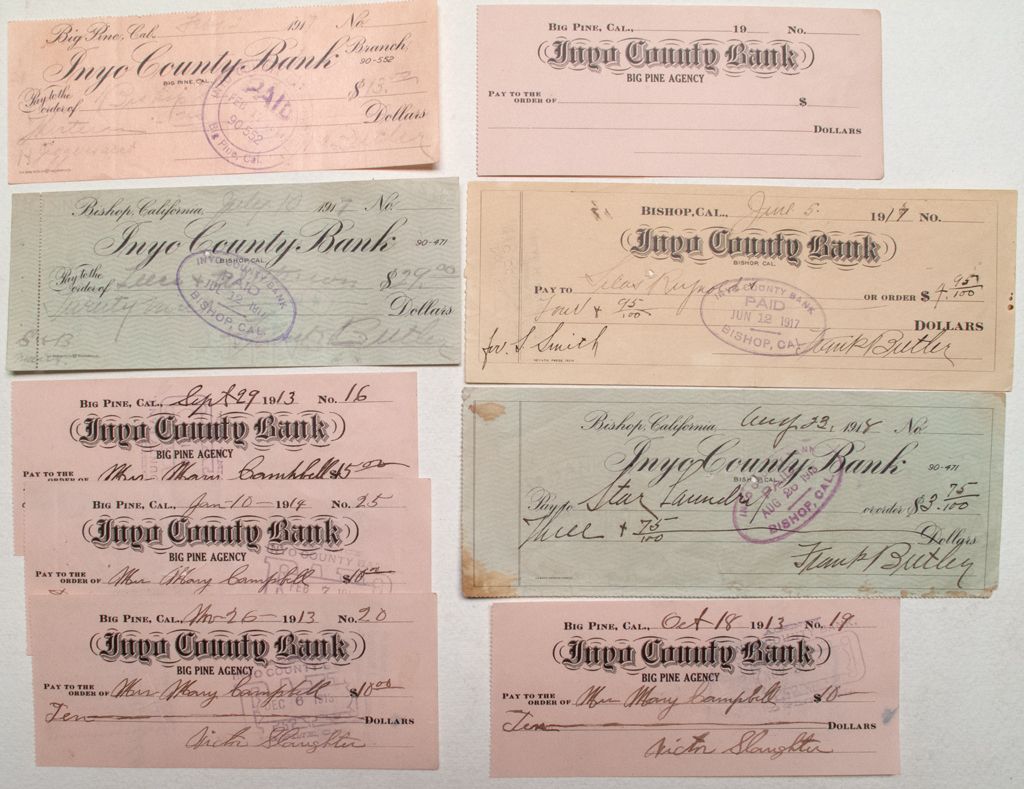 Big Pine, Cal. 191 No.
Inyo County Bank Branch
BIG PINE, CAL. 90-552
Pay to the order of $13.00
Dollars
PAID
FEB
90-552
Big Pine, Cal.
BIG PINE, CAL., 19 No.
Inyo County Bank
BIG PINE AGENCY
PAY TO THE ORDER OF $
DOLLARS
Bishop, California, July 10 1917 No.
Inyo County Bank 90-471
BISHOP, CAL.
Pay to the order of $29.00
Dollars
INYO COUNTY BANK
PAID
JUL 12 1917
BISHOP, CAL.
Butler
BISHOP, CAL., June 5. 1917 No.
Inyo County Bank
BISHOP, CAL.
PAY TO Silas Reynolds OR ORDER $4 95/100
Four & 95/100 DOLLARS
INYO COUNTY BANK
PAID
JUN 12 1917
BISHOP, CAL.
for S. Smith Frank Butler
BIG PINE, CAL., Sept 29 1913 No. 16
Inyo County Bank
BIG PINE AGENCY
PAY TO THE ORDER OF Mrs Mary Campbell $5.00
BIG PINE, CAL., Jan 10 1914 No. 25
Inyo County Bank
BIG PINE AGENCY
PAY TO THE ORDER OF Mrs Mary Campbell $10.00
INYO COUNTY
FEB 7
Bishop, California, Aug 23, 1918 No.
Inyo County Bank 90-471
BISHOP, CAL.
Pay to Star Laundry or order $3 75/100
Three & 75/100 Dollars
PAID
AUG 26 1918
BISHOP, CAL.
Frank Butler
BIG PINE, CAL., Nov 26 1913 No. 20
Inyo County Bank
BIG PINE AGENCY
PAY TO THE ORDER OF Mrs Mary Campbell $10.00
Ten DOLLARS
DEC 6 1913
Victor Slaughter
BIG PINE, CAL., Oct 18 1913 No. 19.
Inyo County Bank
BIG PINE AGENCY
PAY TO THE ORDER OF Mrs Mary Campbell $10
Ten DOLLARS
Victor Slaughter